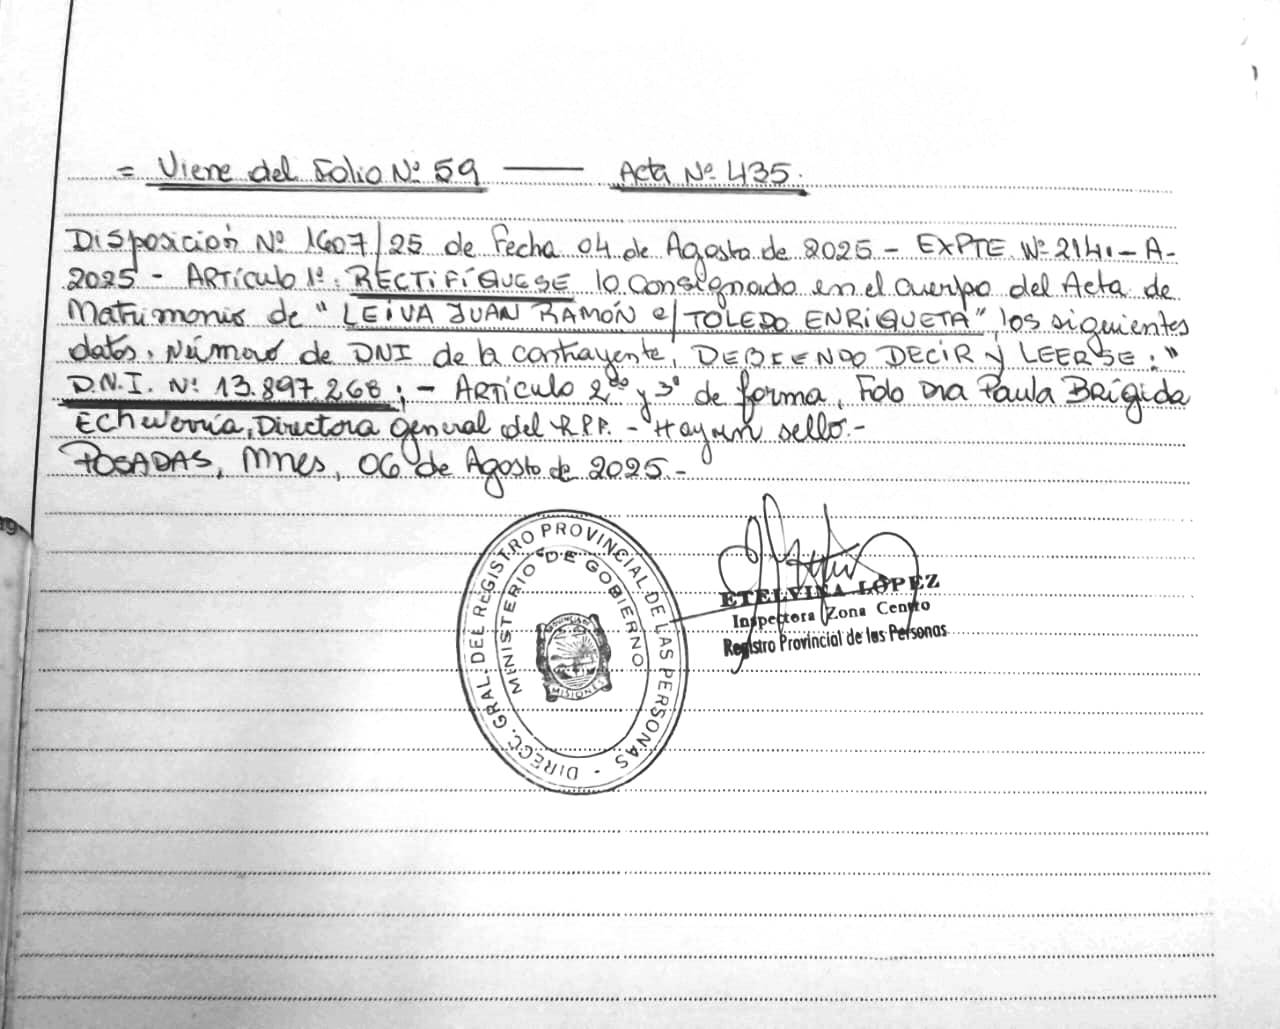 = Viene del Folio Nº 59 —— Acta Nº 435.
Disposición Nº 1607/25 de Fecha 04 de Agosto de 2025 - EXPTE Nº 2141 - A-
2025 - Artículo 1º: RECTIFÍQUESE lo consignado en el cuerpo del Acta de
Matrimonio de "LEIVA JUAN RAMÓN c/ TOLEDO ENRIQUETA", los siguientes
datos. Número de DNI de la contrayente, DEBIENDO DECIR Y LEERSE: "
D.N.I. Nº 13.897.268; - Artículo 2do y 3º de forma, Fdo Dra Paula Brígida
Echeverría, Directora General del R.P.P. - Hay un sello.-
POSADAS, Mnes, 06 de Agosto de 2025.-
DIRECC. GRAL. DEL REGISTRO PROVINCIAL DE LAS PERSONAS -
MINISTERIO DE GOBIERNO
MISIONES
ETELVINA LÓPEZ
Inspectora Zona Centro
Registro Provincial de las Personas